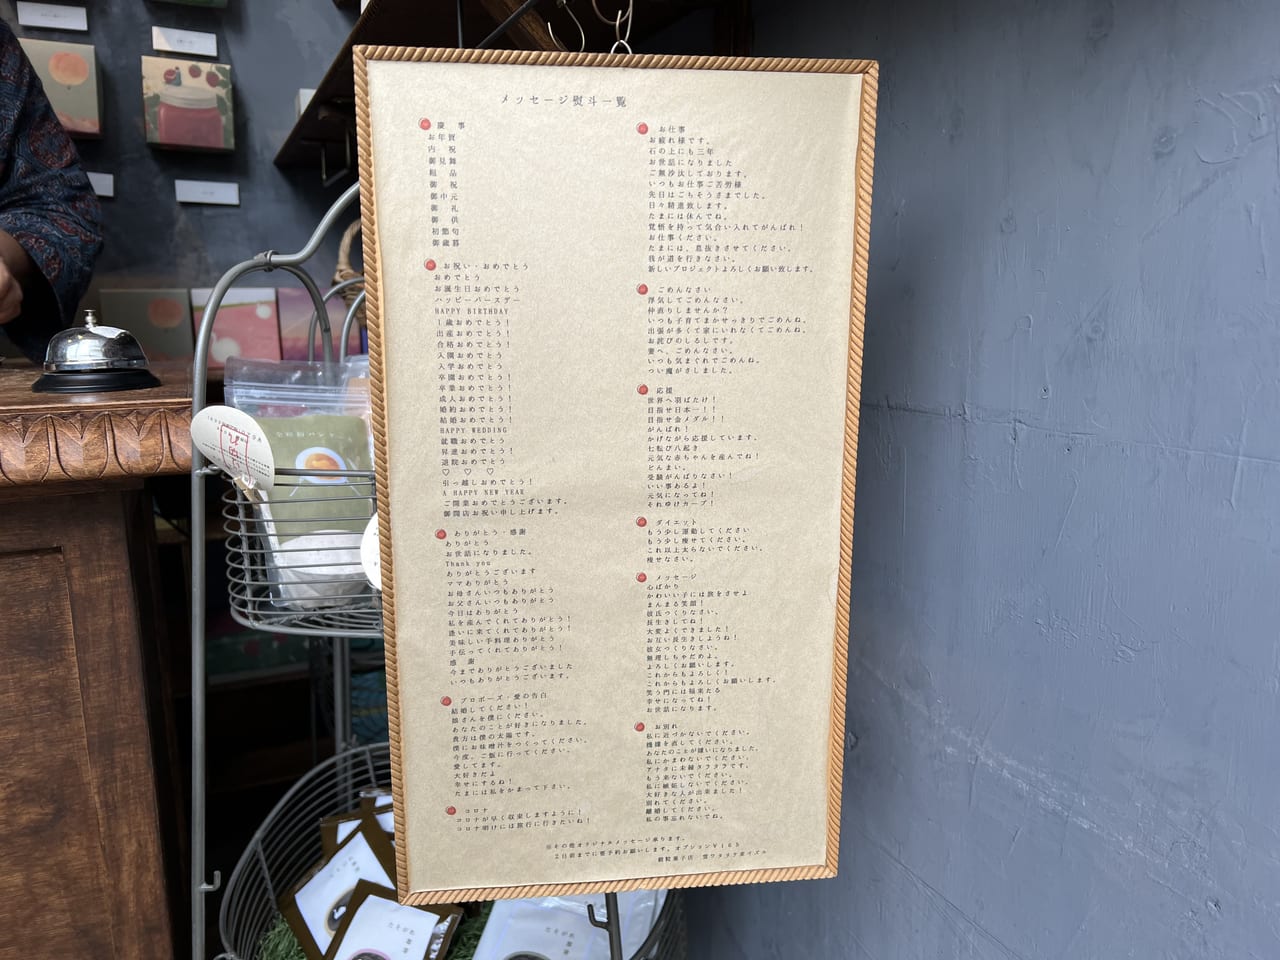 メッセージ熨斗一覧
慶 事
お年賀
内 祝
御見舞
粗 品
御 祝
御中元
御 礼
御 供
初節句
御歳暮
お祝い・おめでとう
おめでとう
お誕生日おめでとう
ハッピーバースデー
HAPPY BIRTHDAY
1歳おめでとう!
出産おめでとう!
合格おめでとう!
入園おめでとう
入学おめでとう
卒園おめでとう!
卒業おめでとう!
成人おめでとう!
婚約おめでとう!
結婚おめでとう!
HAPPY WEDDING
就職おめでとう
昇進おめでとう!
退院おめでとう
♡ ♡ ♡
引っ越しおめでとう!
A HAPPY NEW YEAR
ご開業おめでとうございます。
御開店お祝い申し上げます。
ありがとう・感謝
ありがとう
お世話になりました。
Thank you
ありがとうございます
ママありがとう
お母さんいつもありがとう
お父さんいつもありがとう
今日はありがとう
私を産んでくれてありがとう!
逢いに来てくれてありがとう!
美味しい手料理ありがとう!
手伝ってくれてありがとう!
感 謝
今までありがとうございました
いつもありがとうございます。
プロポーズ・愛の告白
結婚してください!
娘さんを僕にください。
あなたのことが好きになりました。
貴方は僕の太陽です。
僕にお味噌汁をつくってください。
今度、ご飯に行ってください。
愛してます。
大好きだよ
幸せにするね!
たまには私をかまって下さい。
コロナ
コロナが早く収束しますように!
コロナ明けには旅行に行きたいね!
お仕事
お疲れ様です。
石の上にも三年
お世話になりました
ご無沙汰しております。
いつもお仕事ご苦労様
先日はごちそうさまでした。
日々精進致します。
たまには休んでね。
覚悟を持って気合い入れてがんばれ!
お仕事ください。
たまには、息抜きさせてください。
我が道を行きなさい。
新しいプロジェクトよろしくお願い致します。
ごめんなさい
浮気してごめんなさい。
仲直りしませんか?
いつも子育てまかせっきりでごめんね。
出張が多くて家にいれなくてごめんね。
お詫びのしるしです。
妻へ、ごめんなさい。
いつも気まぐれでごめんね。
つい魔がさしました。
応援
世界へ羽ばたけ!
目指せ日本一!!
目指せ金メダル!!
がんばれ!
かげながら応援しています。
七転び八起き
元気な赤ちゃんを産んでね!
どんまい。
受験がんばりなさい!
いい事あるよ!
元気になってね!
それゆけカープ!
ダイエット
もう少し運動してください
もう少し痩せてください。
これ以上太らないでください。
痩せなさい。
メッセージ
心ばかり
かわいい子には旅をさせよ
まんまる笑顔!
彼氏つくりなさい。
長生きしてね!
大変よくできました!
お互い長生きしようね!
彼女つくりなさい。
無理しちゃだめよ。
よろしくお願いします。
これからもよろしく!
これからもよろしくお願いします。
笑う門には福来たる
幸せになってね!
お世話になります。
お別れ
私に近づかないでください。
機嫌を直してください。
あなたのことが嫌いになりました。
私にかまわないでください。
アナタに未練タラタラです。
もう来ないでください。
私に嫉妬しないでください。
大好きな人が出来ました!
別れてください。
離婚してください。
私の事忘れないでね。
※その他オリジナルメッセージ承ります。
2日前までに要予約お願いします。オプション¥165
たそがれ